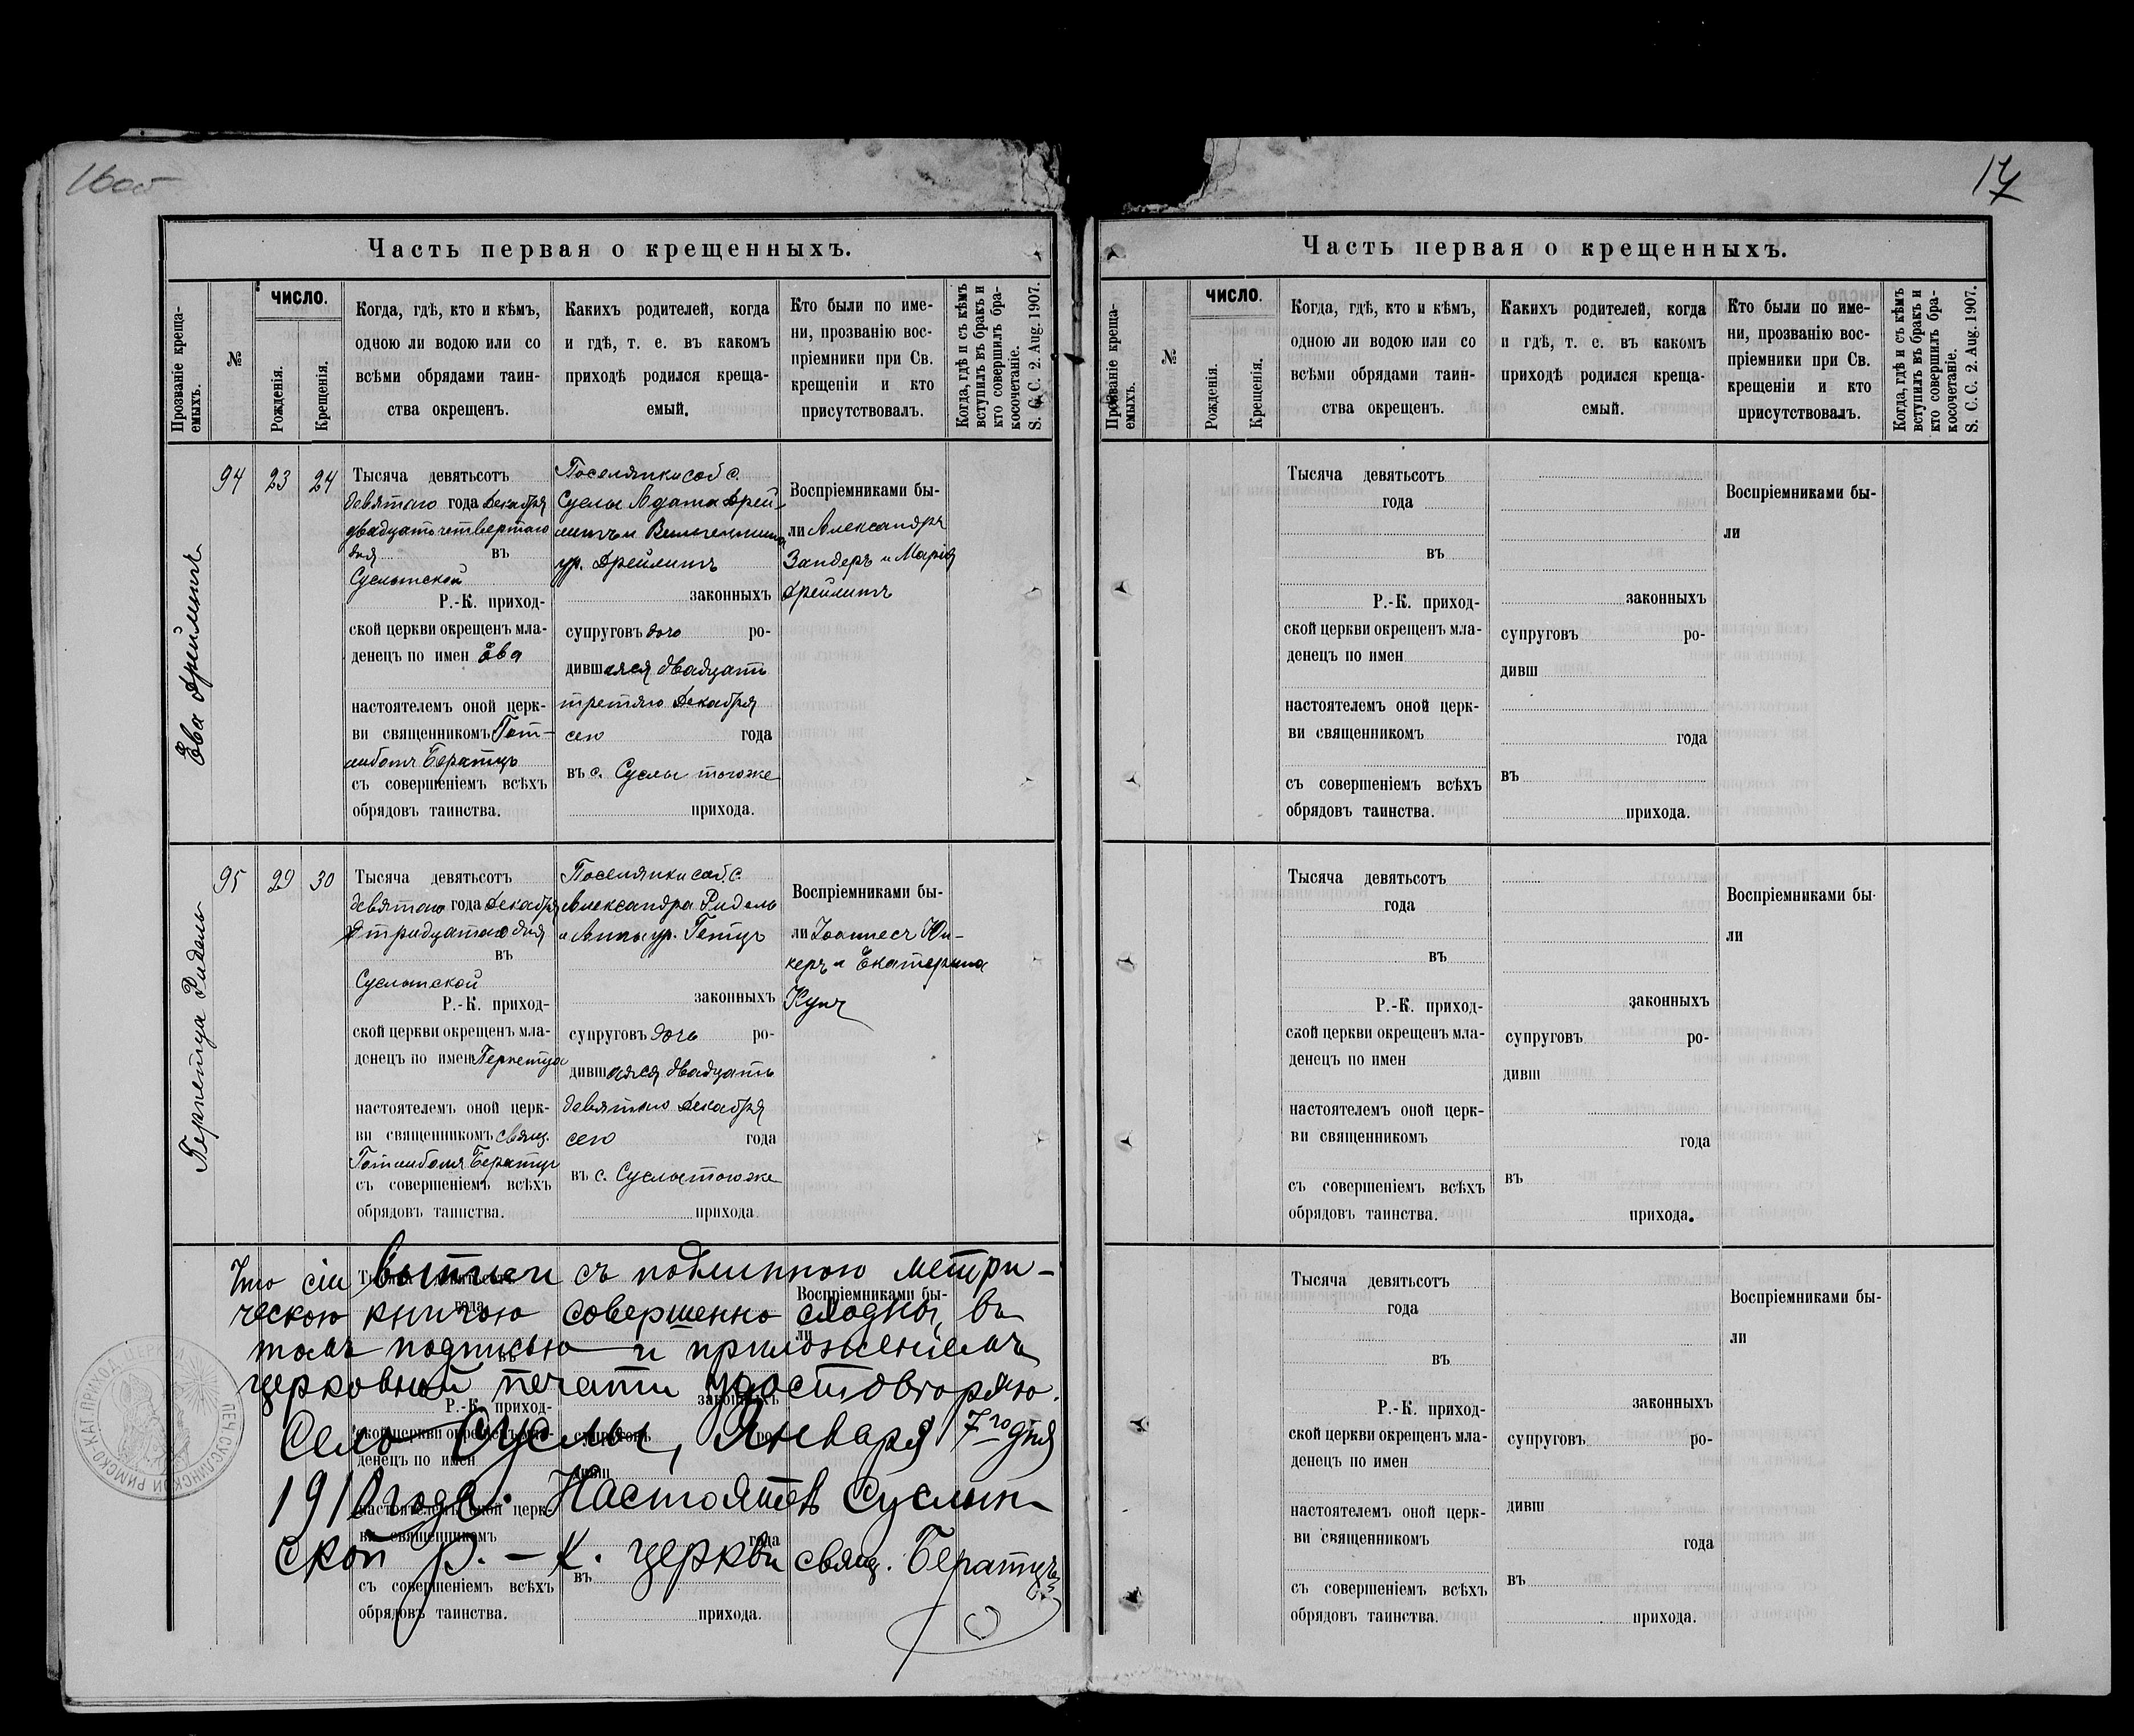 16об
17
Часть первая о крещенныхъ.
Прозваніе креща-
емыхъ.
№
ЧИСЛО.
Рожденія.
Крещенія.
Когда, гдѣ, кто и кѣмъ,
одною ли водою или со
всѣми обрядами таин-
ства окрещенъ.
Какихъ родителей, когда
и гдѣ, т. е. въ какомъ
приходѣ родился креща-
емый.
Кто были по име-
ни, прозванію вос-
пріемники при Св.
крещеніи и кто
присутствовалъ.
Когда, гдѣ и съ кѣмъ
вступилъ въ бракъ и
кто совершилъ бра-
косочетаніе.
S. C. C. 2. Aug. 1907.
Ева Дрейлингъ
94
23
24
Тысяча девятьсотъ
девятаго года Декабря
двадцать четвертаго
дня въ
Суслынской
Р.-К. приход-
ской церкви окрещенъ мла-
денецъ по имен Ева
настоятелемъ оной церк-
ви священникомъ Гот-
либомъ Бератцъ
съ совершеніемъ всѣхъ
обрядовъ таинства.
Поселянки соб с.
Суслы Адама Дрей-
лингъ и Вильгельмина
ур. Дрейлингъ
законныхъ
супруговъ дочь ро-
дившаяся двадцать
третяго Декабря
сего года
въ с. Суслы тогоже
прихода.
Воспріемниками бы-
ли Александръ
Зандеръ и Марія
Дрейлингъ
Перпетуа Ридель
95
29
30
Тысяча девятьсотъ
девятаго года Декабря
тридцатаго дня
въ
Суслынской
Р.-К. приход-
ской церкви окрещенъ мла-
денецъ по имен Перпетуа
настоятелемъ оной церк-
ви священникомъ свящ.
Готлибомъ Бератцъ
съ совершеніемъ всѣхъ
обрядовъ таинства.
Поселянки соб. с.
Александра Ридель
и Анны ур. Гетцъ
законныхъ
супруговъ дочь ро-
дившаяся двадцать
девятаго Декабря
сего года
въ с. Суслы тогоже
прихода.
Воспріемниками бы-
ли Іоаннесъ Юн-
керъ и Екатерина
Кунъ
Что сіи выписи съ подлинною метри-
ческою книгою совершенно сходны, въ
томъ подписью и приложеніемъ
церковной печати удостовѣряю.
Село Суслы, Января 7го дня
1910 года. Настоятель Суслын-
ской р.-к. церкви свящ. Бератцъ
Тысяча девятьсотъ
года
въ
Р.-К. приход-
ской церкви окрещенъ мла-
денецъ по имен
настоятелемъ оной церк-
ви священникомъ
съ совершеніемъ всѣхъ
обрядовъ таинства.
законныхъ
супруговъ ро-
дивш
года
въ
прихода.
Воспріемниками бы-
ли
ПЕЧ. СУСЛИНСКОЙ РИМСКО КАТ. ПРИХОД. ЦЕРКВИ
Часть первая о крещенныхъ.
Прозваніе креща-
емыхъ.
№
ЧИСЛО.
Рожденія.
Крещенія.
Когда, гдѣ, кто и кѣмъ,
одною ли водою или со
всѣми обрядами таин-
ства окрещенъ.
Какихъ родителей, когда
и гдѣ, т. е. въ какомъ
приходѣ родился креща-
емый.
Кто были по име-
ни, прозванію вос-
пріемники при Св.
крещеніи и кто
присутствовалъ.
Когда, гдѣ и съ кѣмъ
вступилъ въ бракъ и
кто совершилъ бра-
косочетаніе.
S. C. C. 2. Aug. 1907.
Тысяча девятьсотъ
года
въ
Р.-К. приход-
ской церкви окрещенъ мла-
денецъ по имен
настоятелемъ оной церк-
ви священникомъ
съ совершеніемъ всѣхъ
обрядовъ таинства.
законныхъ
супруговъ ро-
дивш
года
въ
прихода.
Воспріемниками бы-
ли
Тысяча девятьсотъ
года
въ
Р.-К. приход-
ской церкви окрещенъ мла-
денецъ по имен
настоятелемъ оной церк-
ви священникомъ
съ совершеніемъ всѣхъ
обрядовъ таинства.
законныхъ
супруговъ ро-
дивш
года
въ
прихода.
Воспріемниками бы-
ли
Тысяча девятьсотъ
года
въ
Р.-К. приход-
ской церкви окрещенъ мла-
денецъ по имен
настоятелемъ оной церк-
ви священникомъ
съ совершеніемъ всѣхъ
обрядовъ таинства.
законныхъ
супруговъ ро-
дивш
года
въ
прихода.
Воспріемниками бы-
ли